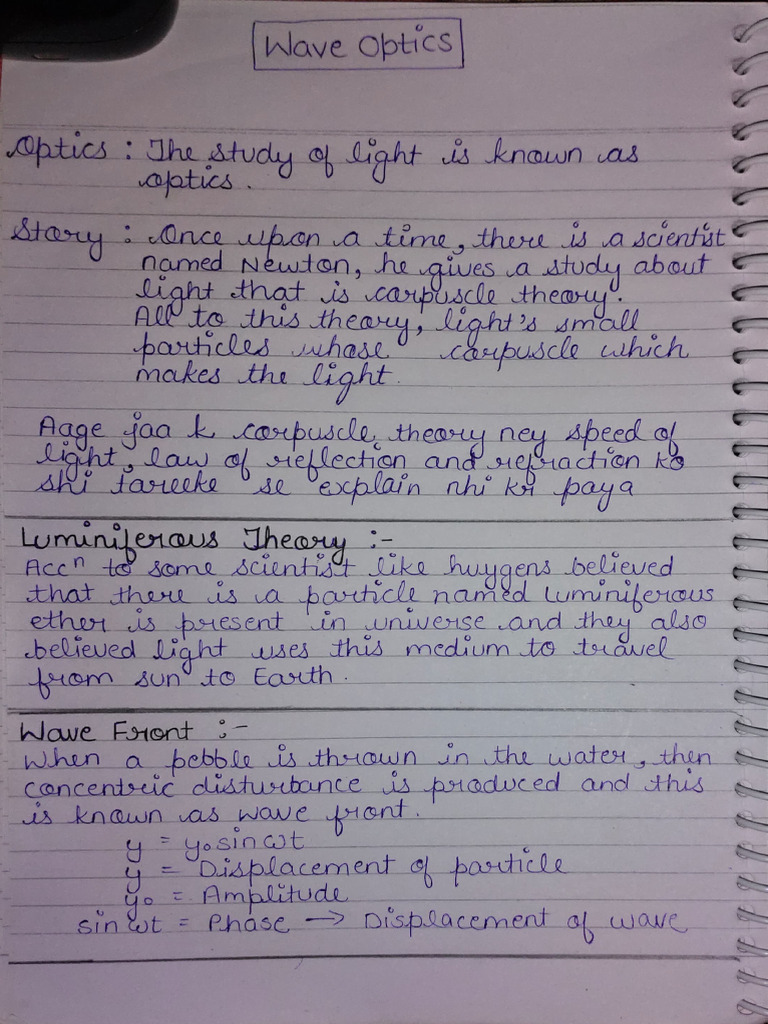 Wave Optics
Optics : The study of light is known as
optics.
Story : Once upon a time, there is a scientist
named Newton, he gives a study about
light that is carpuscle theory.
All to this theory, light's small
particles whose carpuscle which
makes the light.
Aage jaa k corpuscle theory ney speed of
light, law of reflection and refraction ko
shi tareeke se explain nhi kr paya
Luminiferous Theory :-
Accⁿ to some scientist like huygens believed
that there is a particle named luminiferous
ether is present in universe and they also
believed light uses this medium to travel
from sun to Earth.
Wave Front :-
When a pebble is thrown in the water, then
concentric disturbance is produced and this
is known as wave front.
y = y₀sinωt
y = Displacement of particle
y₀ = Amplitude
sinωt = Phase → Displacement of wave